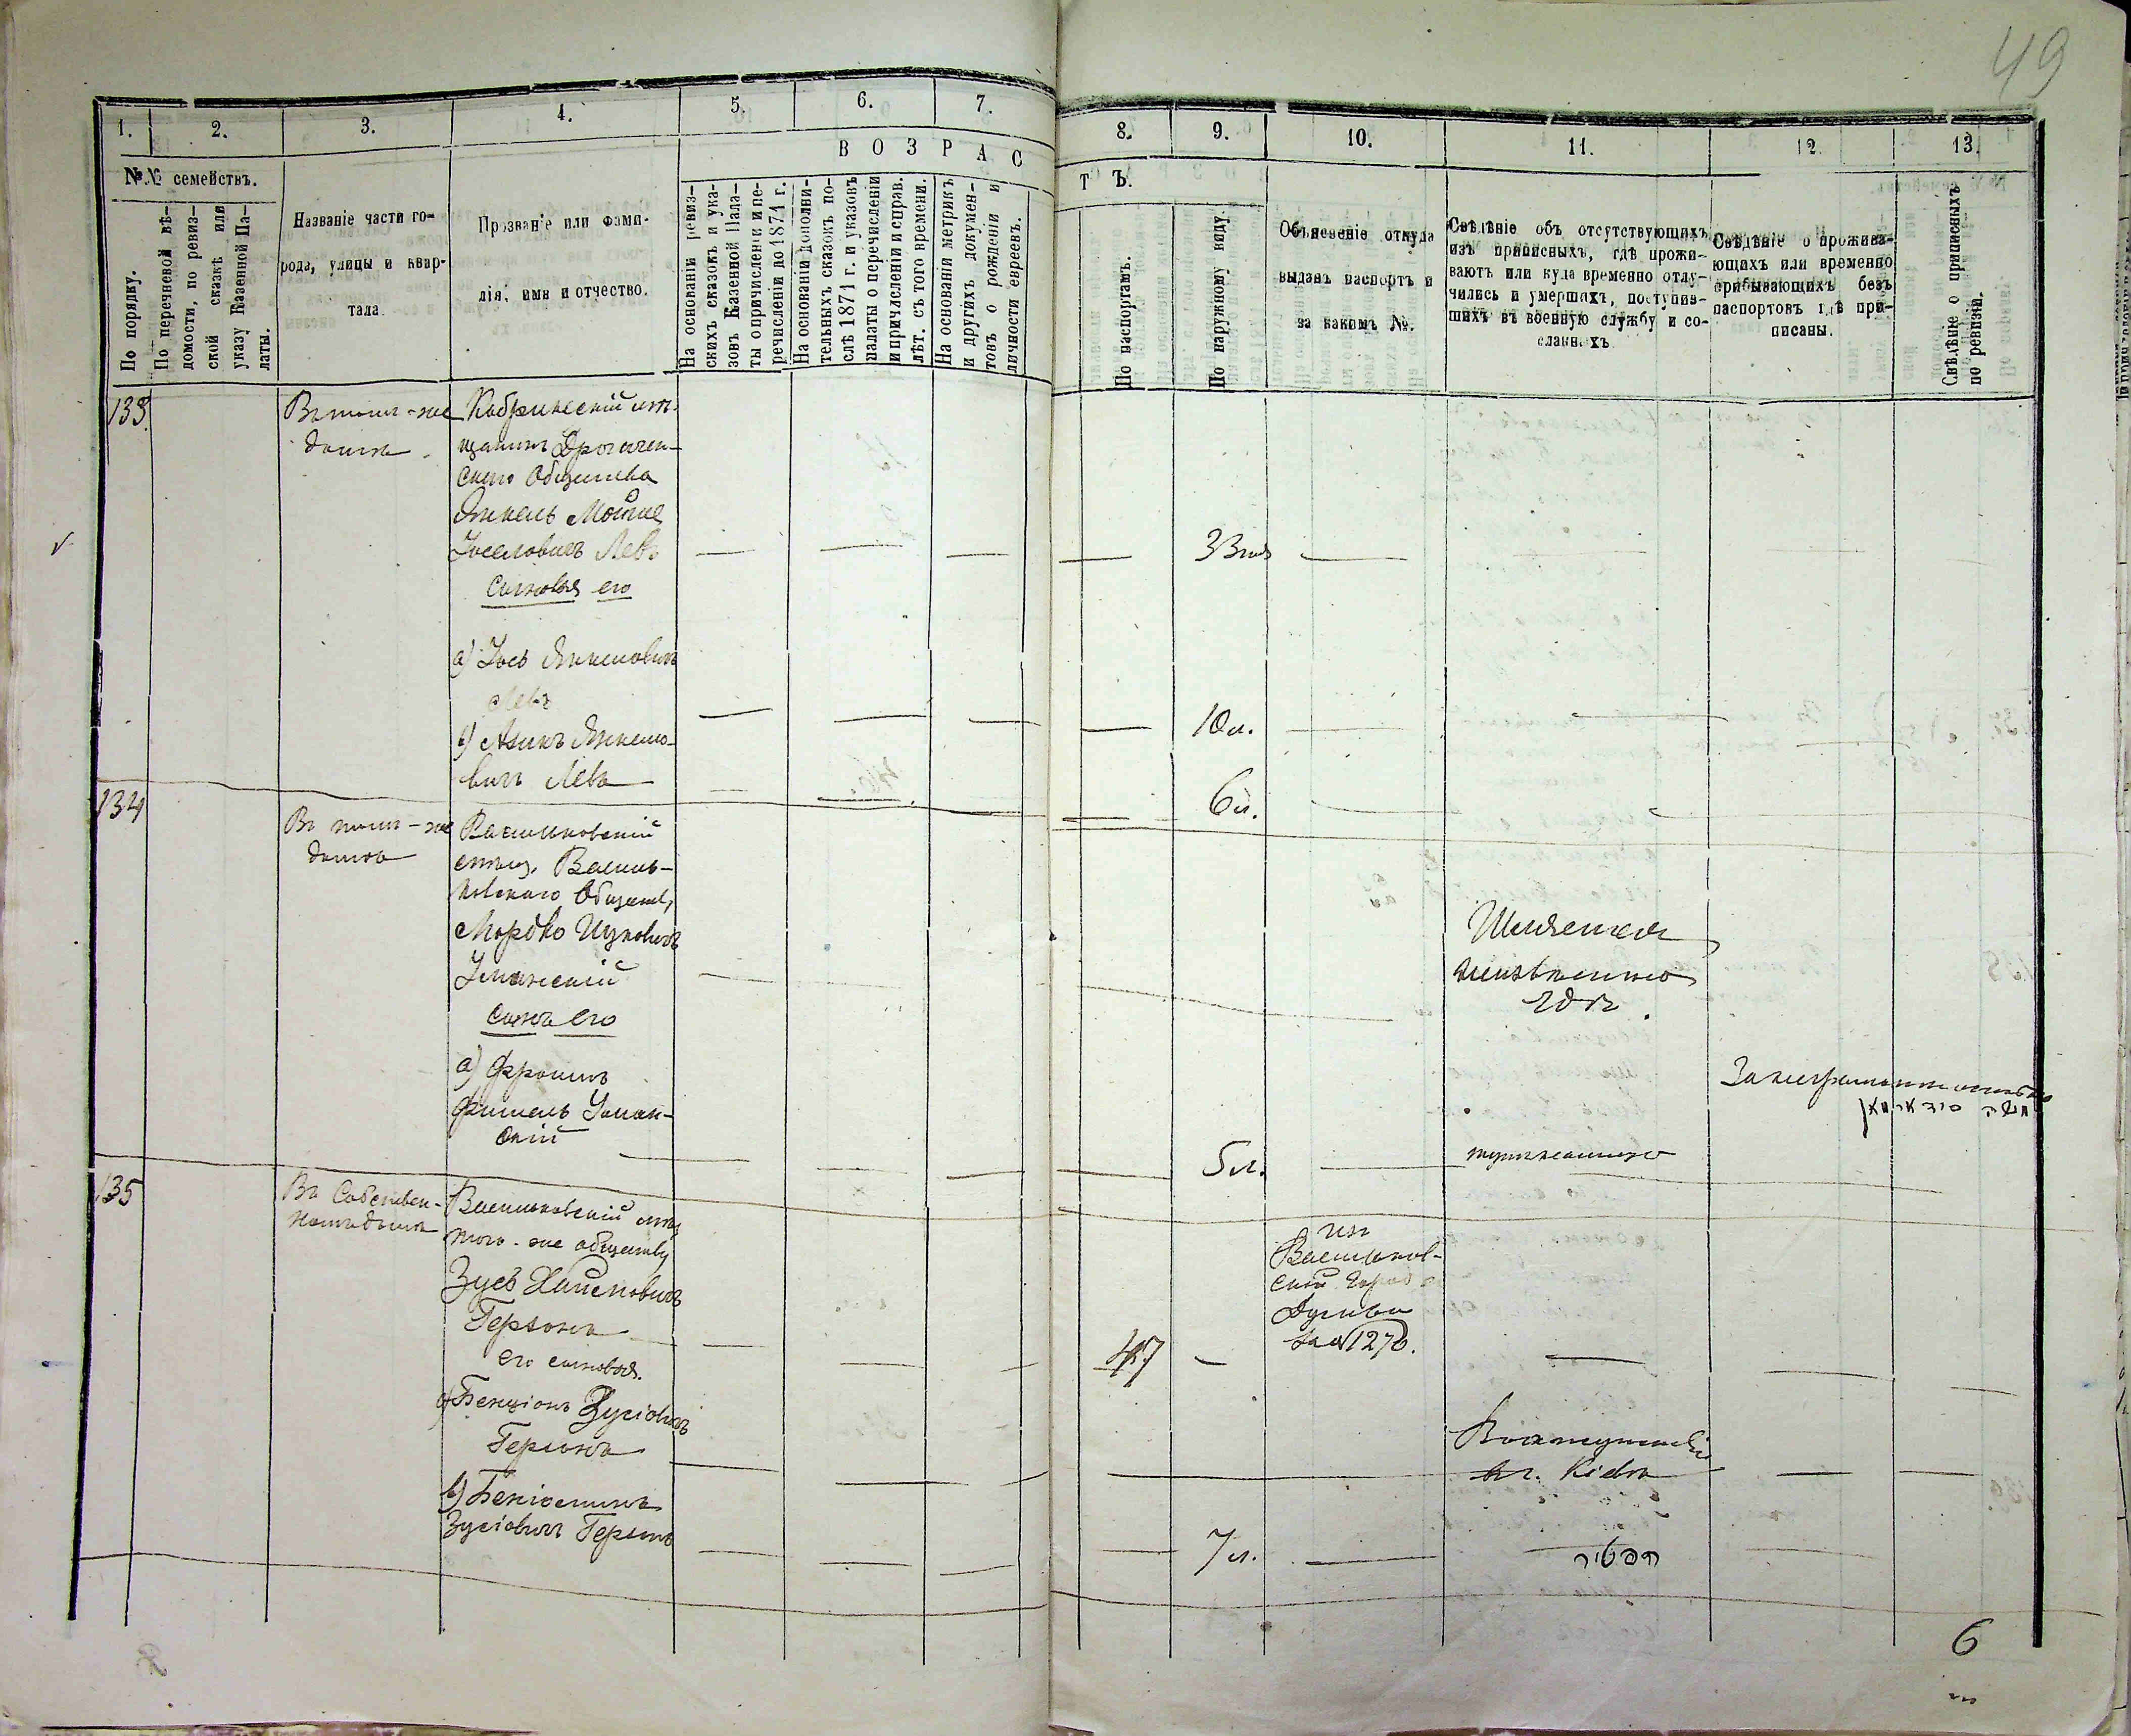 49
1.
2.
3.
4.
5.
6.
7.
8.
9.
10.
11.
12
13.
В О З Р А С
Т Ъ.
№№ семействъ.
По порядку.
По перечневой вѣ-
домости, по ревиз-
ской сказкѣ или
указу Казенной Па-
латы.
Названіе части го-
рода, улицы и квар-
тала.
Прозваніе или фами-
лія, имя и отчество.
На основаніи ревиз-
скихъ сказокъ и ука-
зовъ Казенной Пала-
ты о причисленіи и пе-
речисленіи до 1871 г.
На основаніи дополни-
тельныхъ сказокъ по-
слѣ 1871 г. и указовъ
палаты о перечисленіи
и причисленіи и справ.
лѣт. съ того времени.
На основаніи метрикъ
и другихъ докумен-
товъ о рожденіи и
личности евреевъ.
По паспортамъ.
По наружному виду
Объясненіе откуда
выданъ паспортъ и
за какимъ №.
Свѣдѣніе объ отсутствующихъ
изъ приписныхъ, гдѣ прожи-
ваютъ или куда временно отлу-
чились и умершихъ, поступив-
шихъ въ военную службу и со-
сланныхъ
Свѣдѣніе о прожива-
ющихъ или временно
прибывающихъ безъ
паспортовъ гдѣ при-
писаны.
Свѣдѣніе о приписныхъ
по ревизіи.
133.
Въ томъ-же
домѣ
Кобринскій мѣ-
щанинъ Дрогичин-
скаго Общества
Янкель Мошке
Іоселовичъ Левъ
33 год
сыновья его
а) Іось Янкелевичъ
Левъ
10 л.
в) Азикъ Янкело-
вичъ Левъ
6 л.
134
Въ томъ-же
домѣ
Васильковскій
мѣщ. Василь-
ковскаго Обществ,
Мордко Ицковичъ
Уманскій
Шляется
неизвѣстно
гдѣ.
сынъ его
а) Фроимъ
Фишель Уман-
скій
5 л.
135
Въ Собствен-
номъ домѣ
Васильковскій мѣщ
того-же общества
Зусь Хаимовичъ
Герзонъ
47
изъ
Васильков-
ской Город
Думы
за №1270.
его сыновья.
а) Бенціонъ Зусіовичъ
Герзонъ
Кіевѣ
в) Беніоминъ
Зусіовичъ Герзонъ
7 л.
6